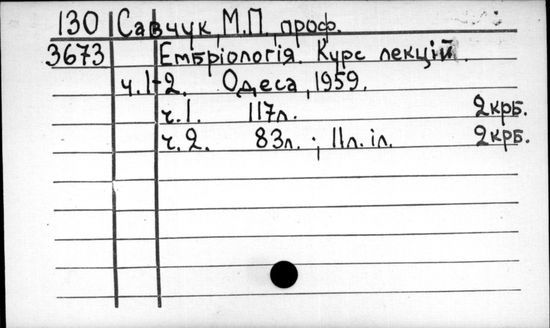 130 Савчук, М.П., проф.
3673 Ембріологія. Курс лекцій.
ч.1-2. Одеса, 1959.
ч.1. 117л. 2крб.
ч.2. 83л.; 11л.іл. 2крб.